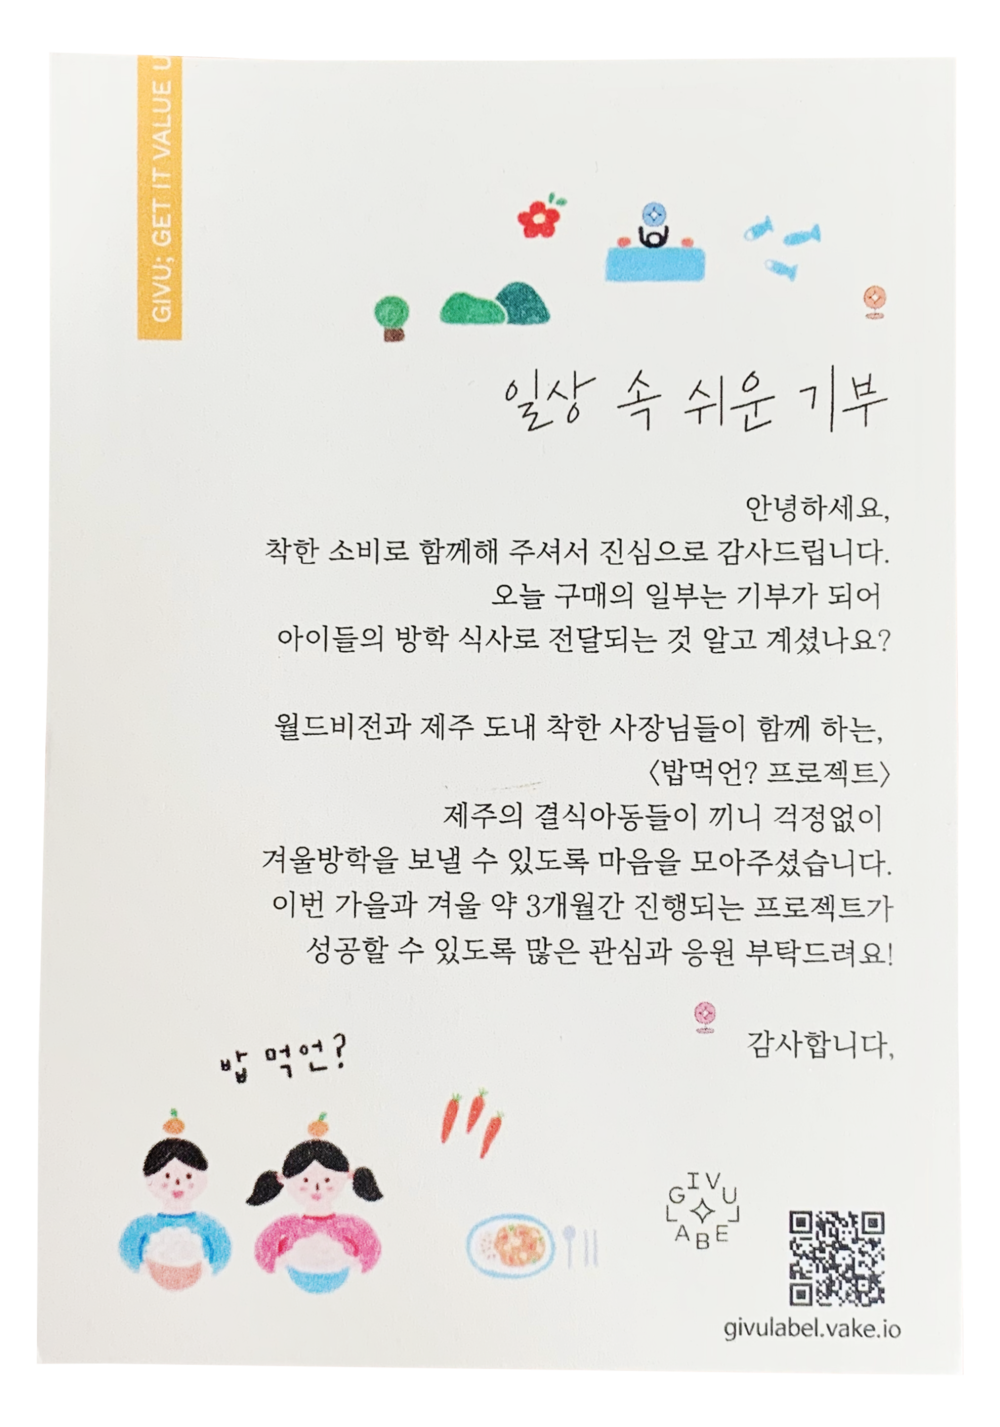 GIVU; GET IT VALUE U
일상 속 쉬운 기부
안녕하세요,
착한 소비로 함께해 주셔서 진심으로 감사드립니다.
오늘 구매의 일부는 기부가 되어
아이들의 방학 식사로 전달되는 것 알고 계셨나요?
월드비전과 제주 도내 착한 사장님들이 함께 하는,
〈밥먹언? 프로젝트〉
제주의 결식아동들이 끼니 걱정없이
겨울방학을 보낼 수 있도록 마음을 모아주셨습니다.
이번 가을과 겨울 약 3개월간 진행되는 프로젝트가
성공할 수 있도록 많은 관심과 응원 부탁드려요!
감사합니다,
밥 먹언?
GIVU
LABEL
givulabel.vake.io